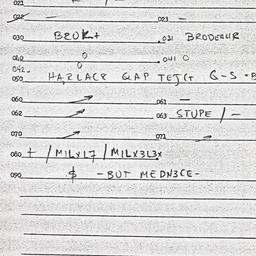 021
022 023 -
030 BROK+ 031 BRODEAUR
040 0 041 0
042-
050 0
HARLACR GAP TEJCT G-S -B
060 061 -
062 063 STUPE / -
070 071
080 + / MILX17 / MILX3L3X
090 $ -BUT MEDN3CE-